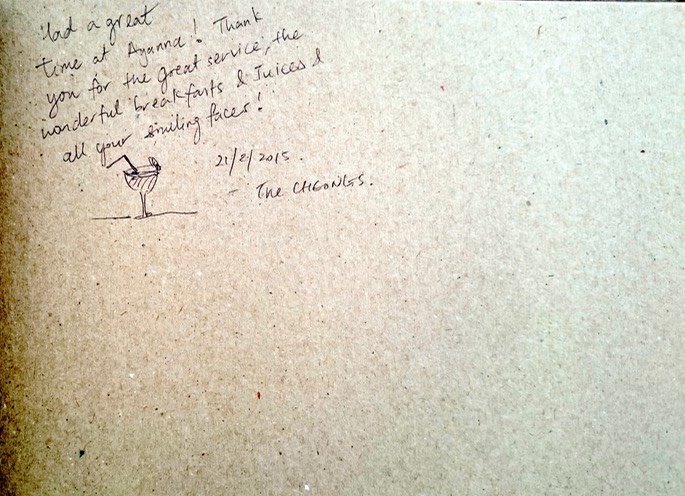 Had a great
time at Ayanna! Thank
you for the great service, the
wonderful breakfasts & Juices &
all your smiling faces!
21/2/2015.
The CHEONGS.